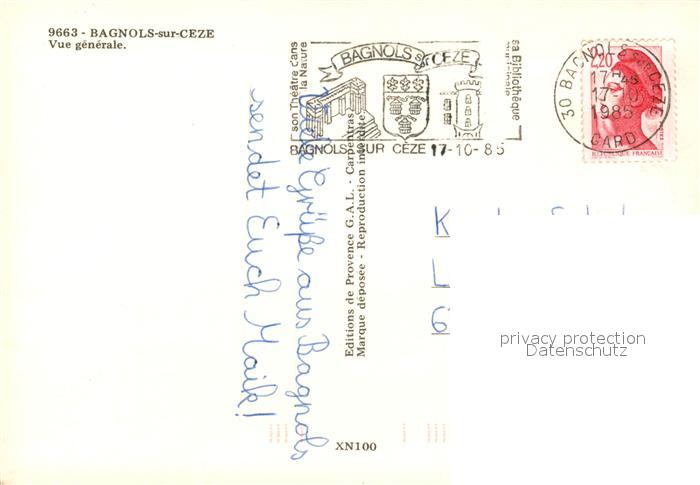 9663 - BAGNOLS-sur-CEZE
Vue générale.
son Théâtre dans
la Nature
BAGNOLS sur CEZE
sa Bibliothèque
BAGNOLS SUR CEZE 17-10-85
30 BAGNOLS SUR CEZE
17H45
17-10
1985
GARD
2,20
POSTES
REPUBLIQUE FRANÇAISE
Viele Grüße aus Bagnols
sendet Euch Maik!
Editions de Provence G.A.L. - Carpentras
Marque déposée - Reproduction interdite
K
L
6
privacy protection
Datenschutz
XN100